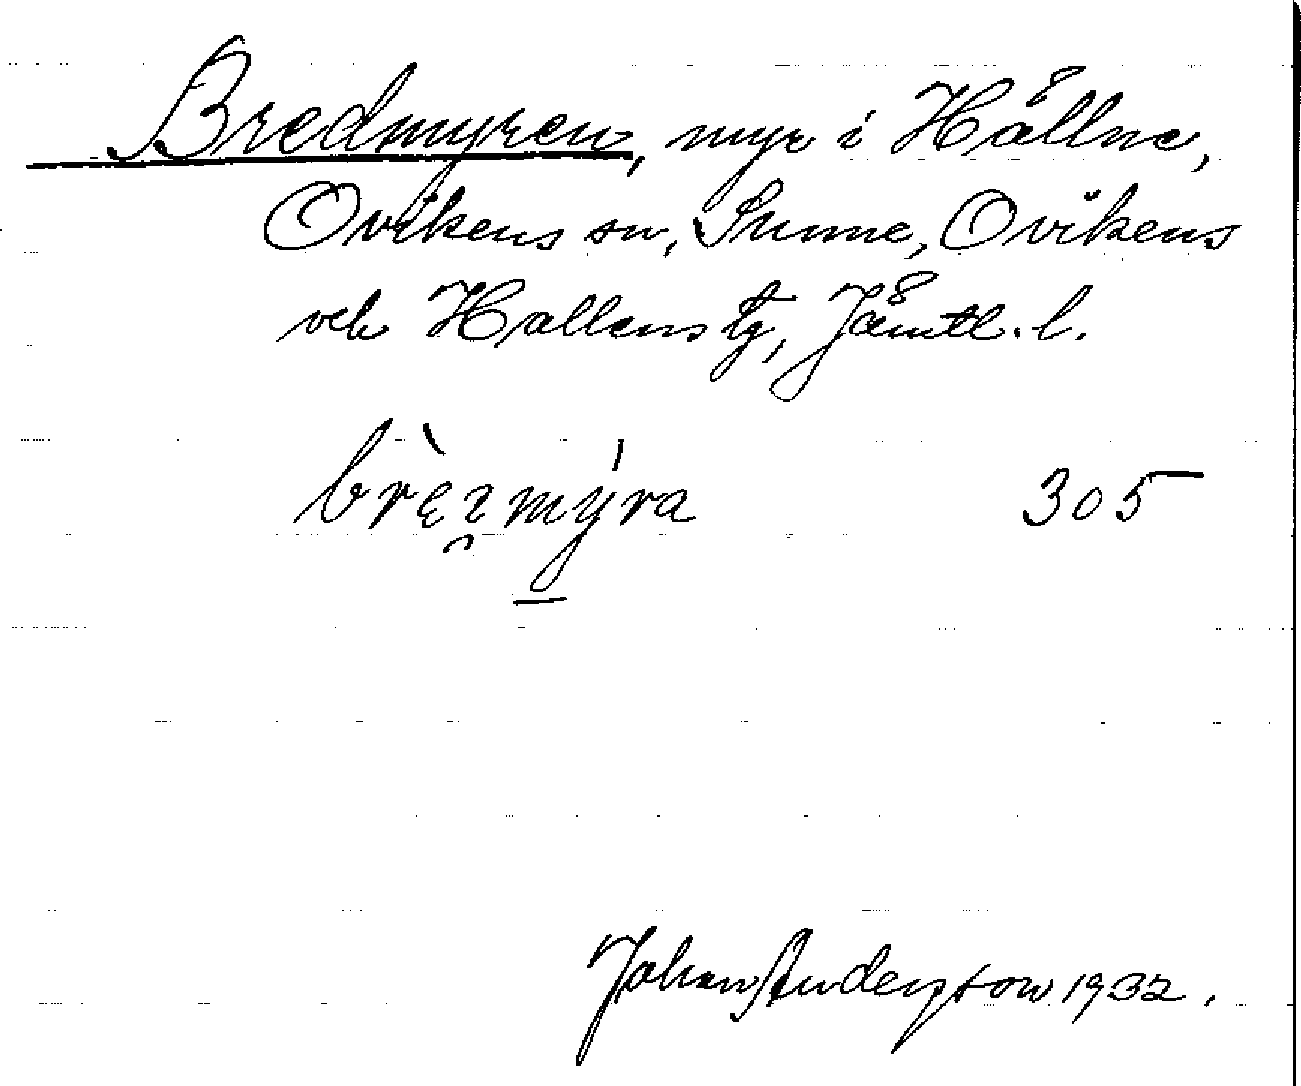 Bredmyren, myr i Hållne,
Ovikens sn, Sunne, Ovikens
och Hallens tg, Jämtl. l.
brę̀ızmýra 305
Johan Anderzson 1932.